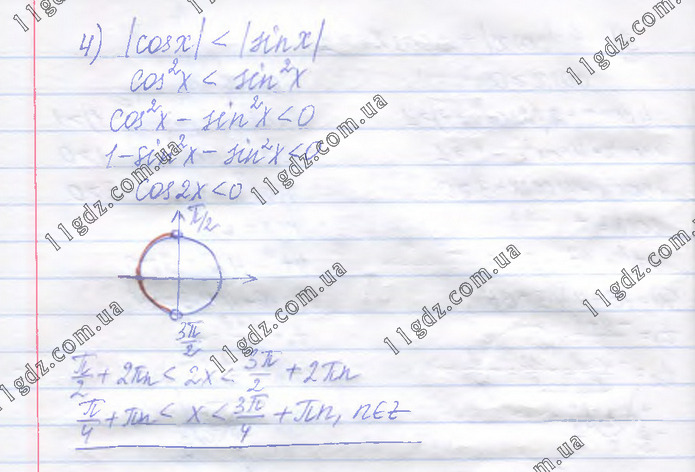 4) |cosx| < |sinx|
cos²x < sin²x
cos²x - sin²x < 0
1 - sin²x - sin²x < 0
cos2x < 0
π/2
3π/2
π/2 + 2πn < 2x < 3π/2 + 2πn
π/4 + πn < x < 3π/4 + πn, n∈Z
11gdz.com.ua
11gdz.com.ua
11gdz.com.ua
11gdz.com.ua
11gdz.com.ua
11gdz.com.ua
11gdz.com.ua
11gdz.com.ua
.com.ua